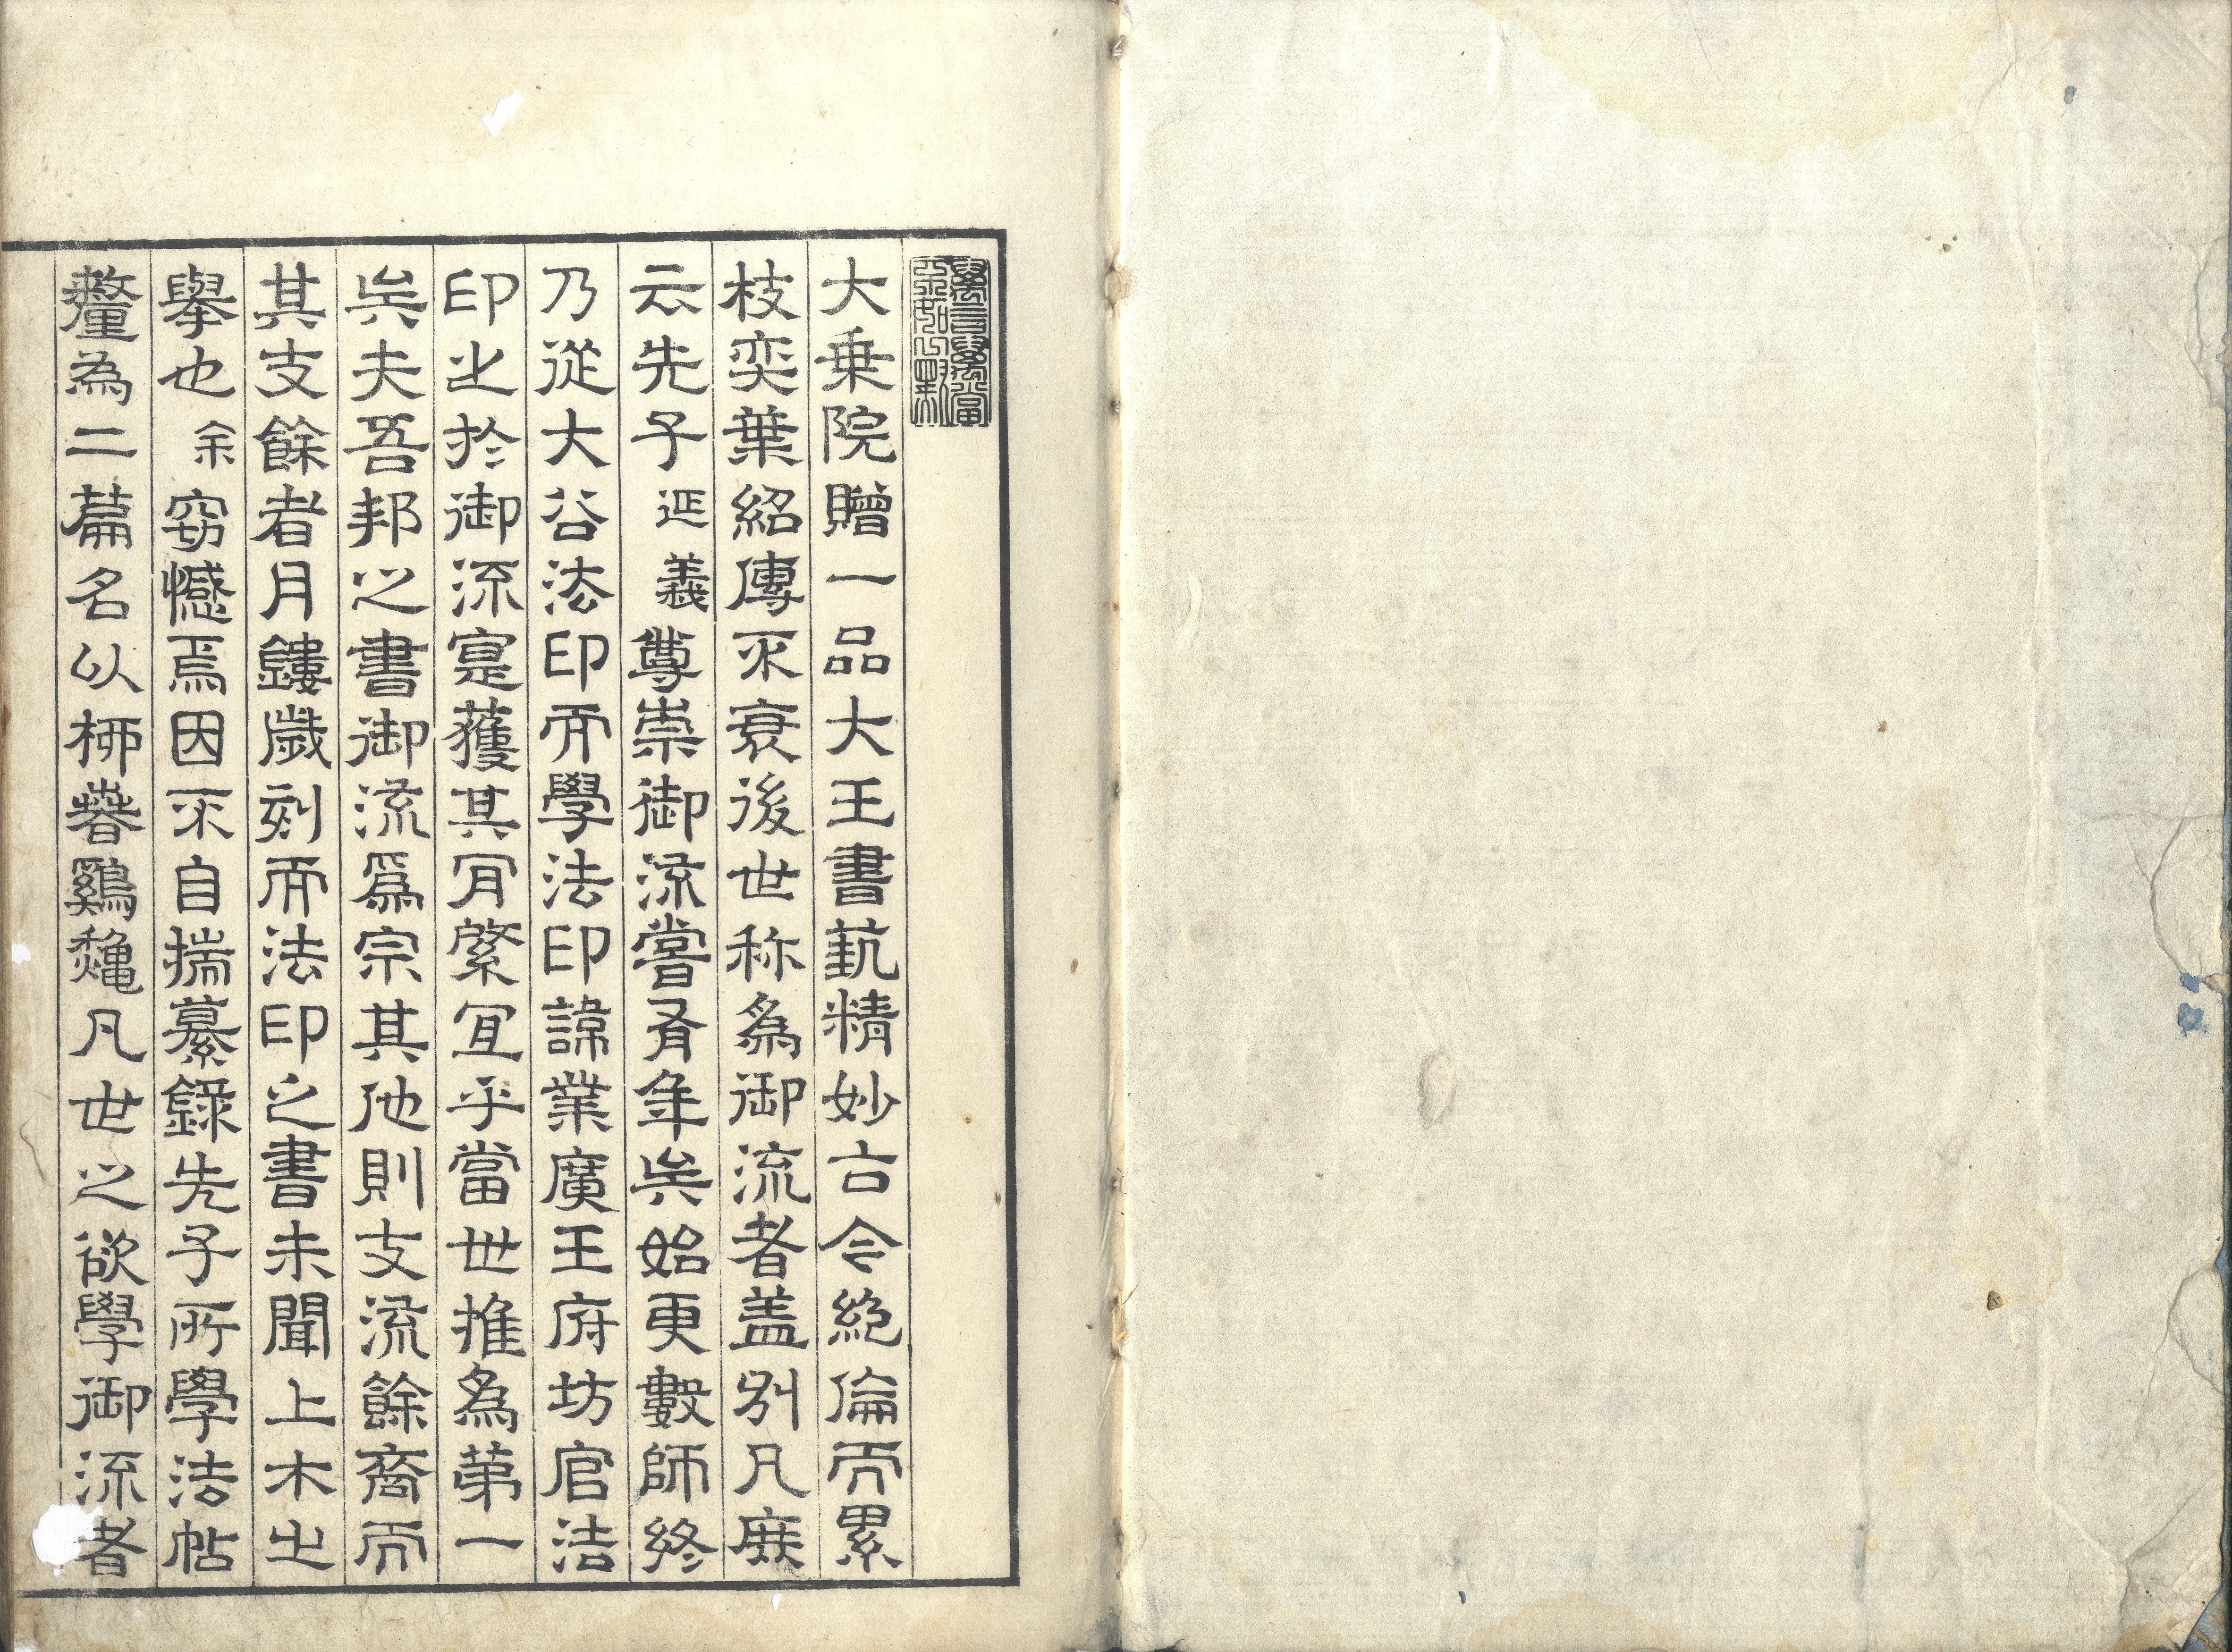 萬言萬當
不如一默
大乗院贈一品大王書蓺精妙古今絶倫而累
枝奕葉紹傳不衰後世称為御流者盖別凡庶
云先子延義尊崇御流嘗有年矣始更數師終
乃從大谷法印而學法印諱業廣王府坊官法
印之於御流寔獲其肎綮宜乎當世推為第一
矣夫吾邦之書御流爲宗其他則支流餘裔而
其支餘者月鏤歲刻而法印之書未聞上木之
舉也余窃憾焉因不自揣纂錄先子所學法帖
釐為二篇名以柳萅鷄龝凡世之欲學御流者